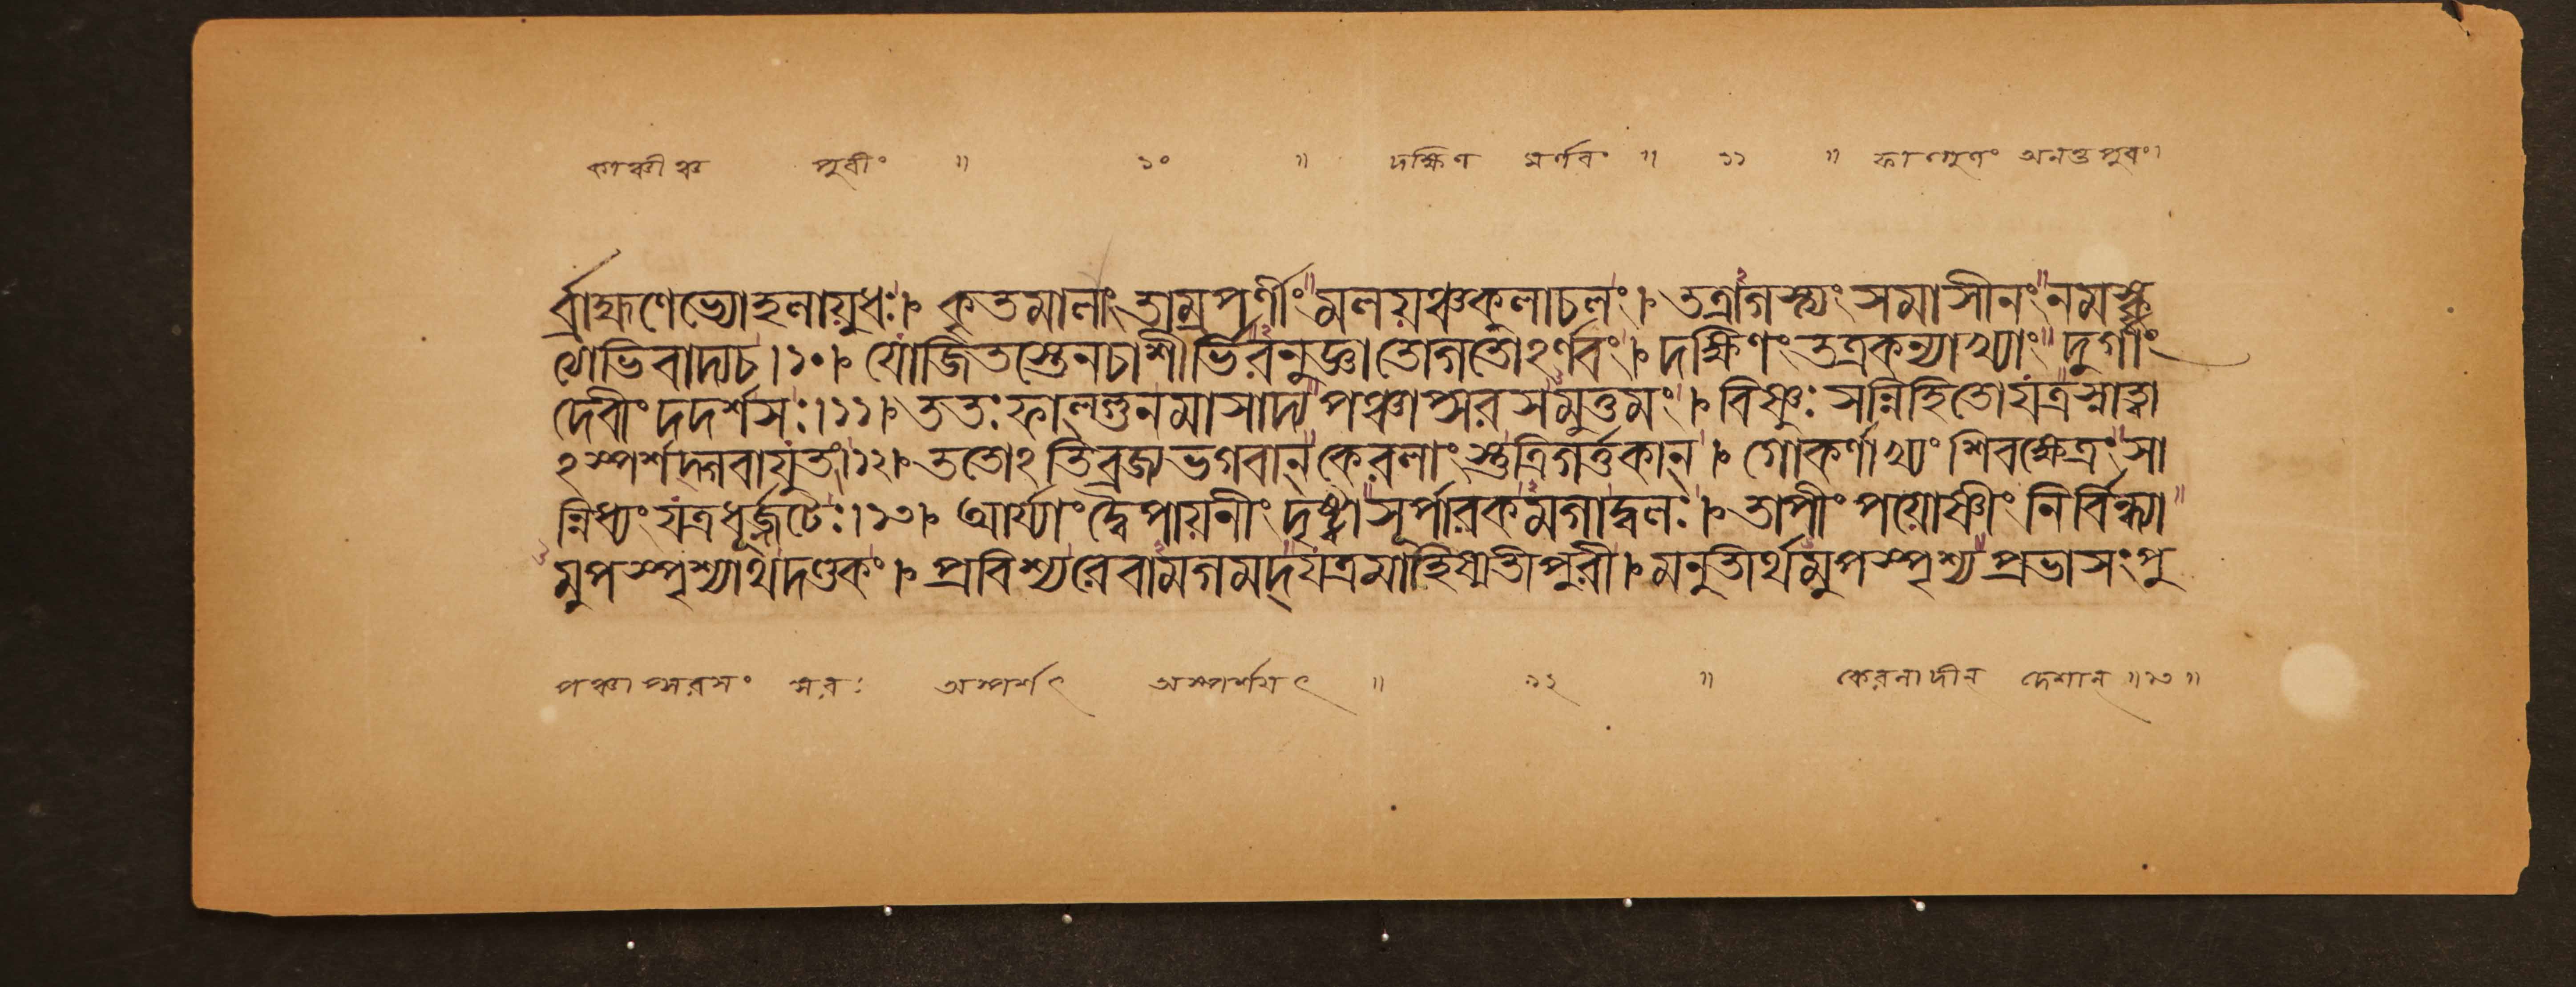 কাঞ্চীঞ্চ পুরীং ॥ ১০ ॥ দক্ষিণ মর্ণবং ॥ ১১ ॥ ফাল্গুণং অনন্তপুরং।
র্ব্রাহ্মণেভ্যোহলায়ুধঃ। কৃতমালাং তাম্রপর্ণীং মলয়ঞ্চকুলাচলং। তত্রাগস্ত্যং সমাসীনং নমস্কৃ
ত্যোভিবাদ্যচ।১০। যোজিতস্তেনচাশীর্ভিরনুজ্ঞাতোগতোঽর্ণবং। দক্ষিণং তত্রকন্যাখ্যাং দুর্গাং
দেবীং দদর্শসঃ।১১। ততঃ ফাল্গুনমাসাদ্য পঞ্চাপ্সরসমুত্তমং। বিষ্ণুঃ সন্নিহিতোযত্রস্নাত্বা
ঽস্পর্শদ্গবাযুতং।১২। ততোঽতিব্রজ্যভগবান্ কেরলাংস্তুত্রিগর্ত্তকান্। গোকর্ণাখ্যং শিবক্ষেত্রং সা
ন্নিধ্যং যত্রধূর্জ্জটেঃ।১৩। আর্য্যাং দ্বৈপায়নীং দৃষ্ট্বাসূর্পারকমগাদ্বলঃ। তাপীং পয়োষ্ণীং নির্বিন্ধ্যা
মুপস্পৃশ্যাথদণ্ডকং। প্রবিশ্যরেবামগমদ্যত্রমাহিষ্মতীপুরী। মনুতীর্থমুপস্পৃশ্য প্রভাসংপু
পঞ্চাপ্সরসং সরঃ অস্পর্শৎ অস্পর্শয়ৎ ॥ ১২ ॥ কেরলাদীন্ দেশান্ ॥১৩॥